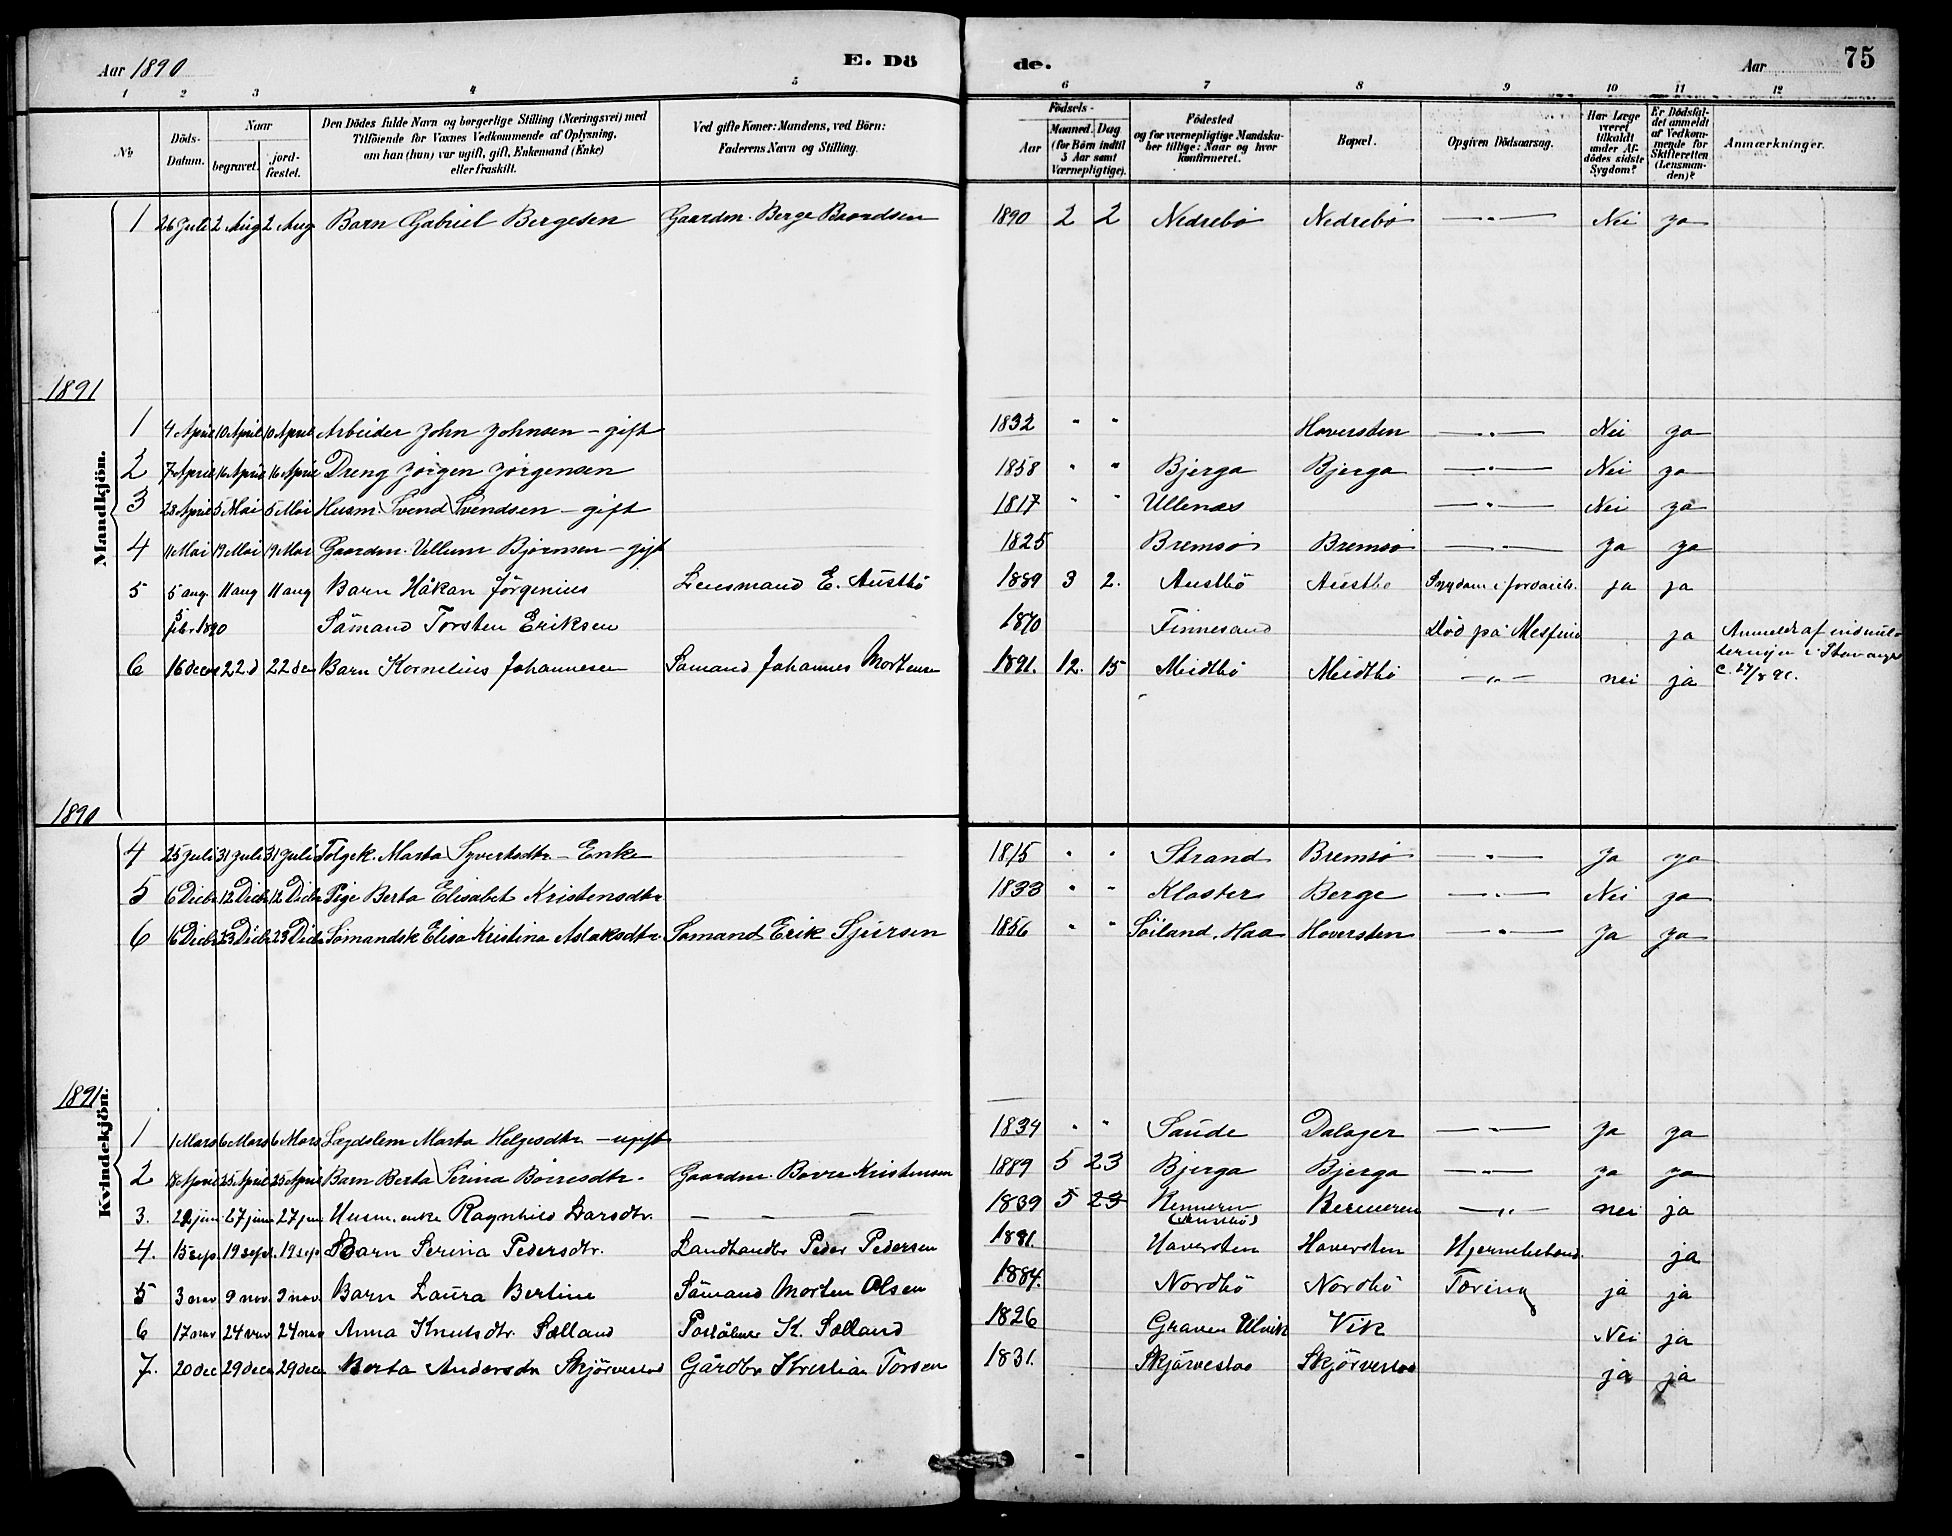 Aar 1890 E. Dö de. Aar 75
1 2 3 4 5 6 7 8 9 10 11 12
No. Döds-Datum. Naar begravet. jordfæstet. Den Dödes fulde Navn og borgerlige Stilling (Næringsvei) med Tilföiende for Voxnes Vedkommende af Oplysning, om han (hun) var ugift, gift, Enkemand (Enke) eller fraskilt. Ved gifte Koner: Mandens, ved Börn: Faderens Navn og Stilling. Födsels- Aar Maaned. Dag (for Börn indtil 5 Aar samt Værnepligtige). Födested og for værnepligtige Mandskaber tillige: Naar og hvor konfirmeret. Bopæl. Opgiven Dödsaarsag. Har Læge været tilkaldt under Afdödes sidste Sygdom? Er Dödsfaldet anmeldt af Vedkommende for Skifteretten (Lensmanden)? Anmærkninger.
1 26 Juli 2 Aug 2 Aug Barn Gabriel Bergesen Gaardm. Berge Baardsen 1890 2 2 Nedrebö Nedrebö — " — Nei Ja
1891
Mandkjön.
1 4 April 10 April 10 April Arbeider John Johnsen – gift 1832 " " Haversten — " — Nei Ja
2 7 April 16 April 16 April Dreng Jörgen Jörgensen 1858 " " Bjerga Bjerga — " — Nei Ja
3 28 April 5 Mai 5 Mai Husm. Svend Svendsen – gift 1817 " " Ullenæs — " — Nei Ja
4 11 Mai 19 Mai 19 Mai Gaardm. Vellum Bjørnsen – gift 1825 Bremsö Bremsö — " — Ja Ja
5 5 aug. 11 aug 11 aug Barn Håkan Jörgenius Lensmand E. Austbö 1889 3 2. Austbö Austbö Sygdom i ja ja
5 febr 1890 Sömand Torsten Eriksen 1870 Finnesand Död på ja Anmeldt af i Stavanger
6 16 decem 22. d 22 dec Barn Kornelius Johannesen Sømand Johannes Mortensen 1891. 12. 15 Meidtbö Meidtbö — " — nei ja 27/8 91.
1890
4 25 Juli 31 Juli 31 Juli Folgek. Marta Syvertsdtr – Enke 1815 " " Strand Bremsö — " — Ja Ja
5 6 Decbr 12 Decbr 12 Decbr Pige Berta Elisabet Kristensdtr 1833 " " Kloster Berge — " — Nei Ja
6 16 Decbr 23 Decbr 23 Decbr Sömandsk Elisa Kristina Aslaksdtr Sømand Erik Sjursen 1856 " " Söiland, Haa Haversten — " — Ja Ja
1891
Kvindekjön.
1 1 Mars 6 Mars 6 Mars Lægdslem Marta Helgesdtr – ugift 1834 " " Saude Dalager — " — Ja Ja
2 18 April 25 April 25 April Barn Berta Serina Böiresdtr. Gaardm. Bovre Kristensen 1889 5 23 Bjerga Bjerga — " — Ja Ja
3. 22 juni 27 juni 27 jun Husm. enke Ragnhild Larsdtr. — — — 1839 5 23 (Austbö) — " — nei ja
4. 15 sep. 19 sept. 19 sep Barn Serina Pedersdtr. Landhandlr Peder Pedersen 1891. Haversten Haversten ja
5 3 nov 9 nov. 9 nov Barn Laura Bertine Sömand Morten Olsen 1884. Nordbö Nordbö Tæring ja ja
6 17 nov 24 nov 24 nov Anna Knutsdtr. Sælland K. Sælland 1826 Graven Ulvik Vik Nei ja
7. 20 dec 29 dec 29 dec Berta Andersdr Skjörvestad Gårdbr Kristian Torsen 1831. Skjörvestad Skjörvestad ja ja